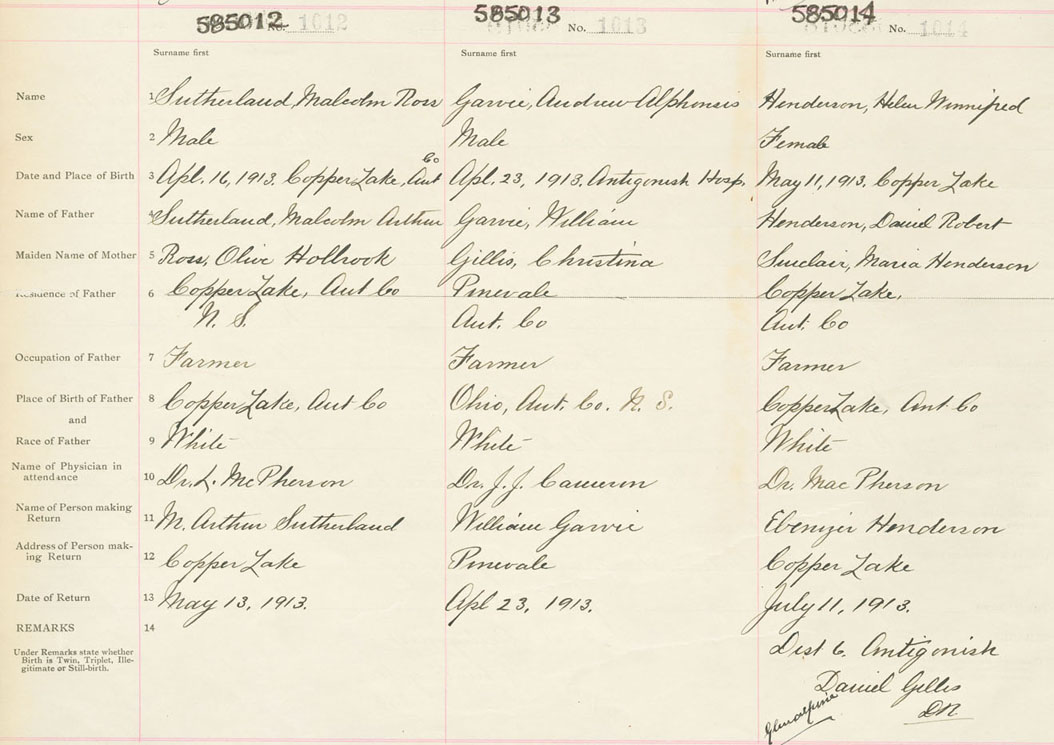 585012 No. 1012 585013 No. 1013 585014 No. 1014
Surname first Surname first Surname first
Name 1 Sutherland, Malcolm Ross Garvie, Andrew Alphonsis Henderson, Helen Winnifred
Sex 2 Male Male Female
Co
Date and Place of Birth 3 Apl. 16, 1913. Copper Lake, Ant Apl. 23, 1913. Antigonish Hosp. May 11, 1913. Copper Lake
Name of Father 4 Sutherland, Malcolm Arthur Garvie, William Henderson, Daniel Robert
Maiden Name of Mother 5 Ross, Olive Holbrook Gillis, Christina Sinclair, Maria Henderson
Residence of Father 6 Copper Lake, Ant Co Pinevale Copper Lake,
N. S. Ant. Co Ant. Co
Occupation of Father 7 Farmer Farmer Farmer
Place of Birth of Father 8 Copper Lake, Ant Co Ohio, Ant. Co. N. S. Copper Lake, Ant Co
and
Race of Father 9 White White White
Name of Physician in
attendance 10 Dr. L. McPherson Dr. J. J. Cameron Dr. MacPherson
Name of Person making
Return 11 M. Arthur Sutherland William Garvie Ebenezer Henderson
Address of Person mak-
ing Return 12 Copper Lake Pinevale Copper Lake
Date of Return 13 May 13, 1913. Apl 23, 1913. July 11, 1913.
REMARKS 14
Under Remarks state whether
Birth is Twin, Triplet, Ille-
gitimate or Still-birth.
Dist 6. Antigonish
Daniel Gillis
DR
Glenalpine